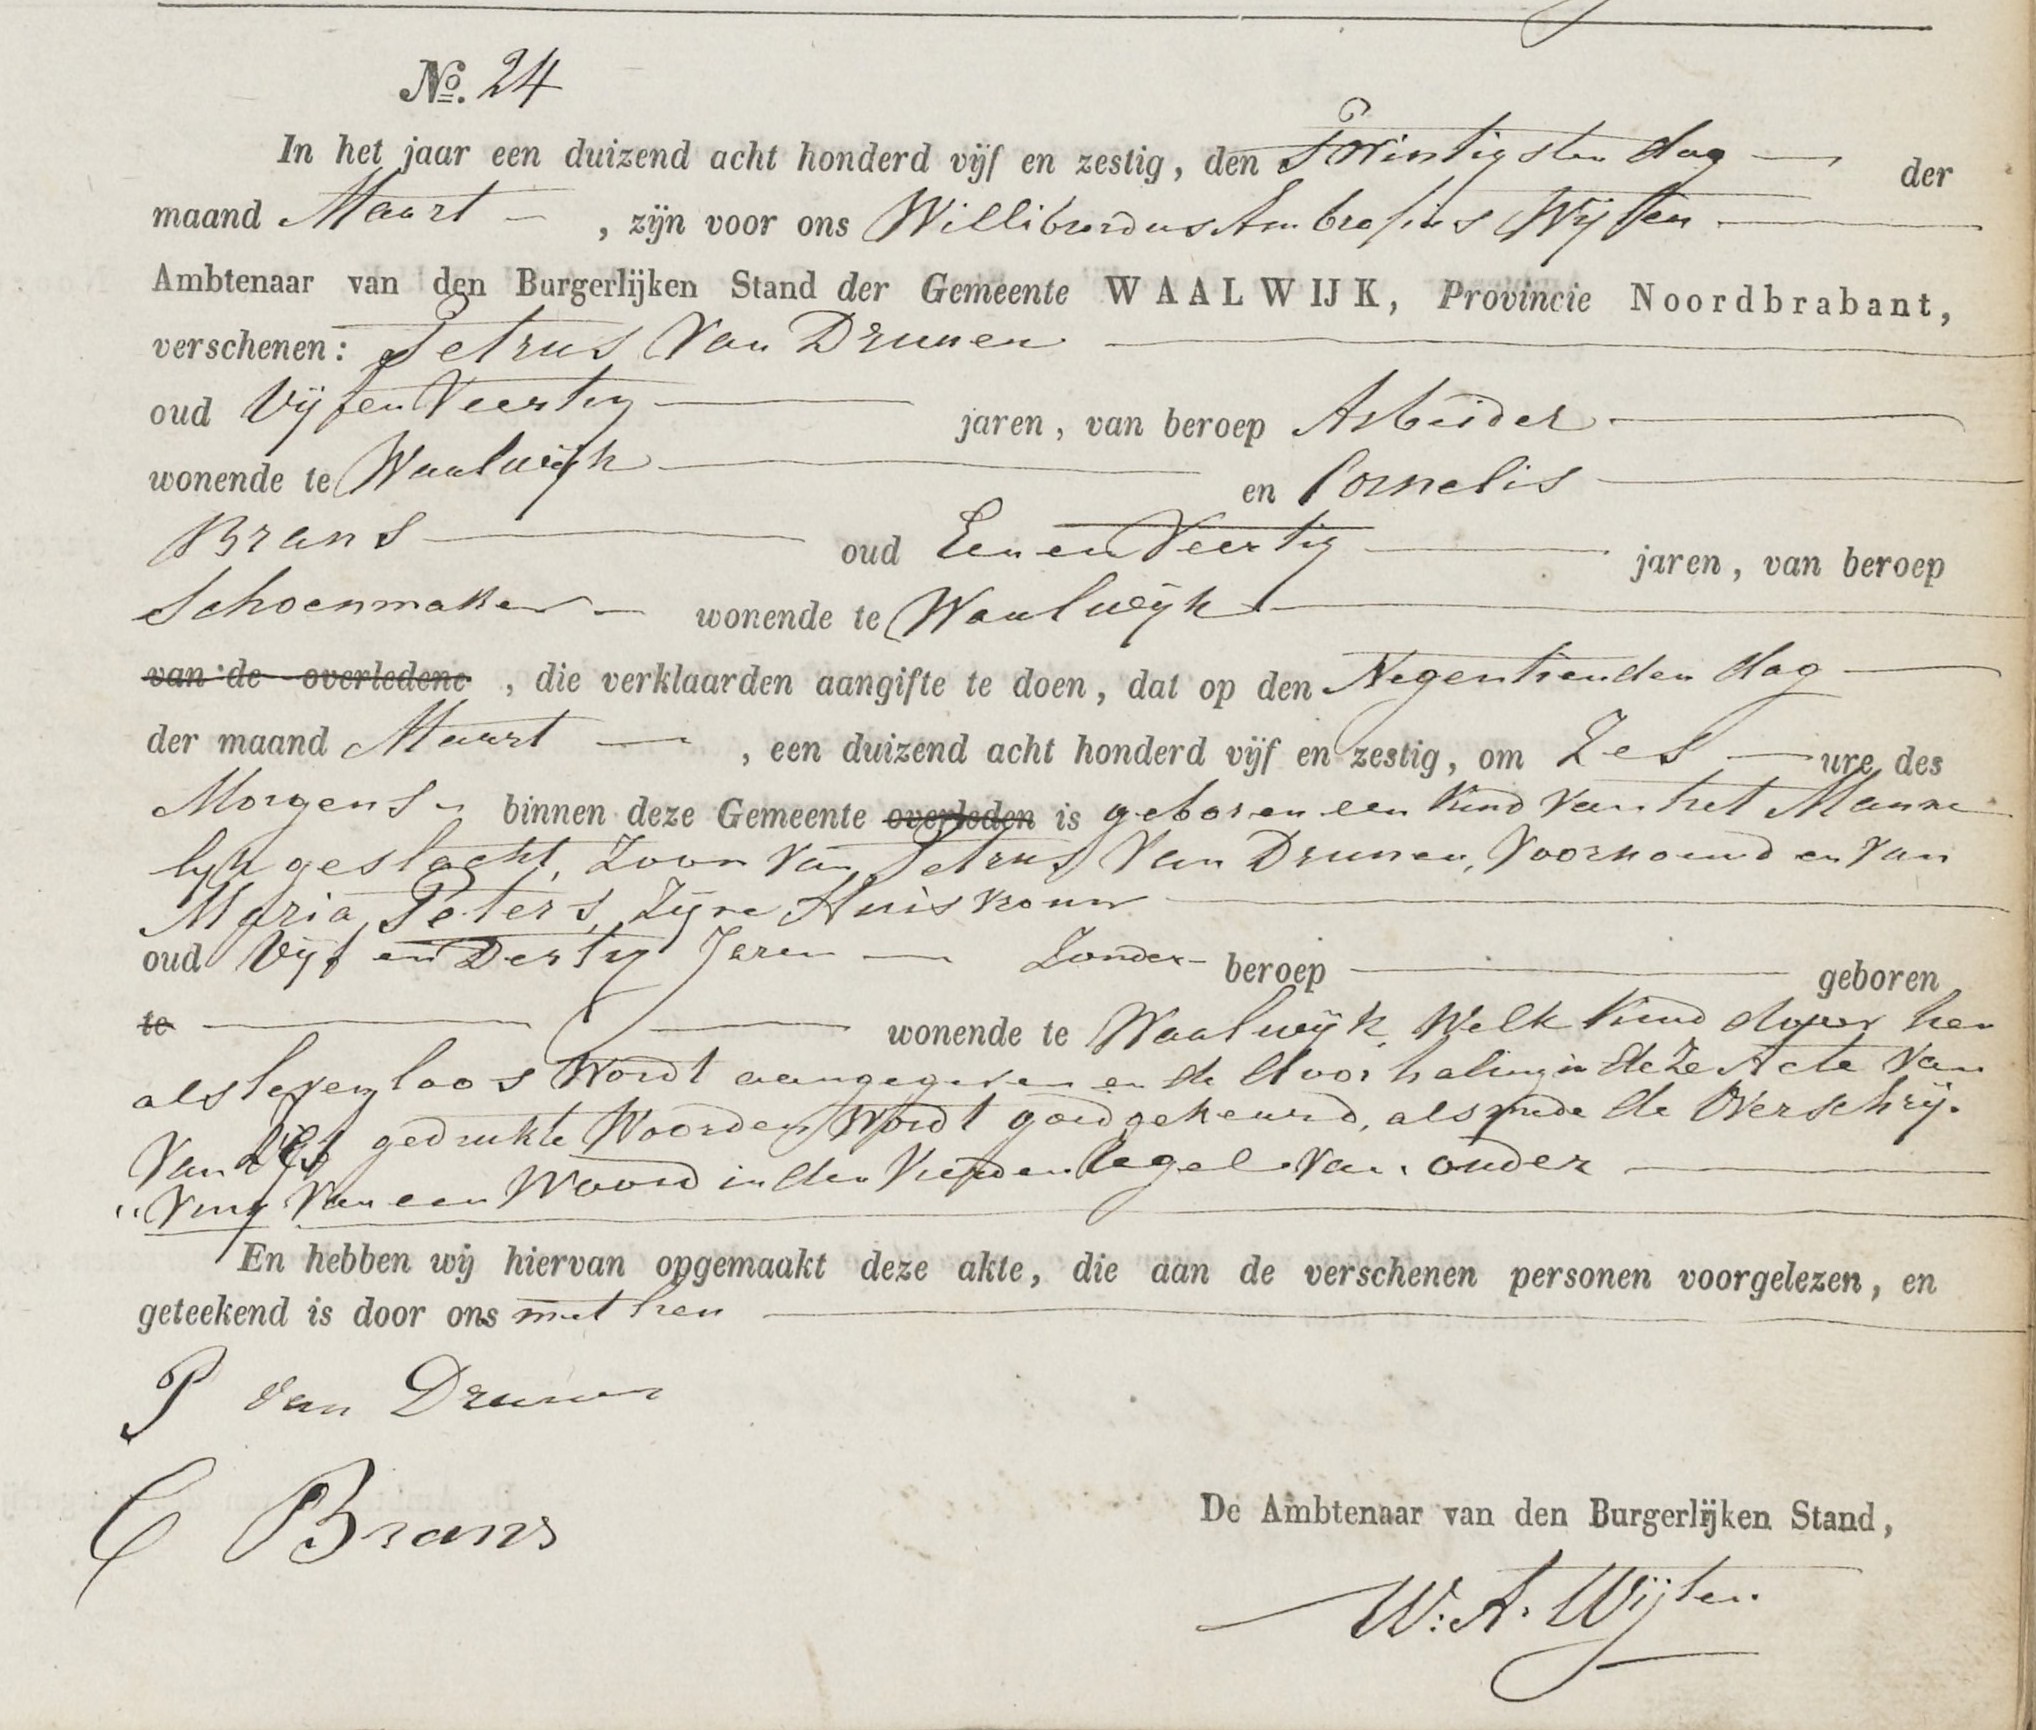 No. 24
In het jaar een duizend acht honderd vijf en zestig, den Twintigsten dag der
maand Maart, zijn voor ons Willibrordus Ambrosius Wijten
Ambtenaar van den Burgerlijken Stand der Gemeente WAALWIJK, Provincie Noordbrabant,
verschenen: Petrus Van Drunen
oud Vijf en Veertig jaren, van beroep Arbeider
wonende te Waalwijk en Cornelis
Brans oud Een en Veertig jaren, van beroep
Schoenmaker wonende te Waalwijk
van de overledene, die verklaarden aangifte te doen, dat op den Negentienden dag
der maand Maart, een duizend acht honderd vijf en zestig, om Zes ure des
Morgens binnen deze Gemeente overleden is geboren een Kind van het Manne
lijk geslacht, Zoon van Petrus Van Drunen, Voornoemd en van
Maria Peters, Zijne Huisvrouw
oud Vijf en Dertig Jaren Zonder beroep geboren
te wonende te Waalwijk, Welk Kind door hen
als levenloos Wordt aangegeven en de doorhaling in deze Acte van
Van gedrukte Woorden Wordt goedgekeurd, alsmede de Verschrij-
"ving Van een Woord in den Vierden regel van onder
En hebben wij hiervan opgemaakt deze akte, die aan de verschenen personen voorgelezen, en
geteekend is door ons met hen
P van Drunen
C Brans
De Ambtenaar van den Burgerlijken Stand,
W. A. Wijten